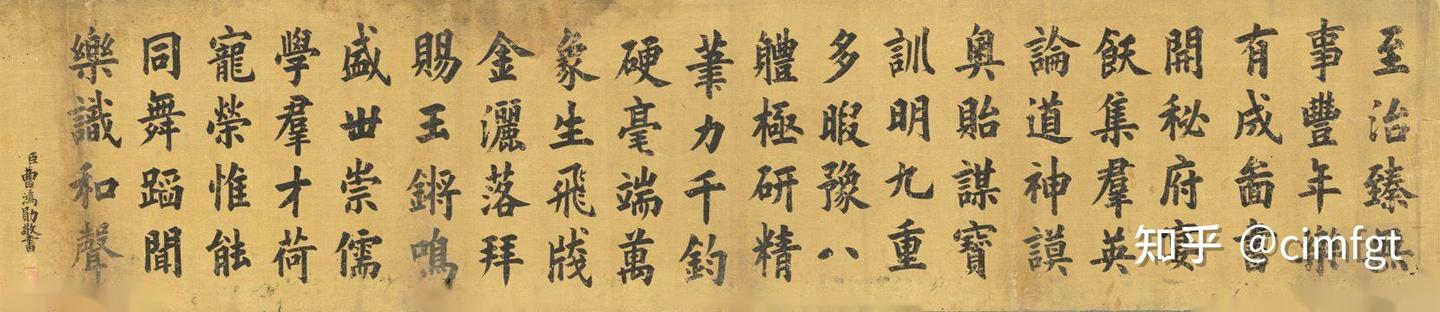 至治臻無
事豐年樂
有成啚書
開秘府宴
飫集羣英
論道神謨
奧貽謀寶
訓明九重
多暇豫八
體極研精
筆力千鈞
硬毫端萬
象生飛牋
金灑落拜
賜玉鏘鳴
盛世崇儒
學羣才荷
寵榮惟能
同舞蹈聞
樂識和聲
臣曹鴻勛敬書
知乎 @cimfgt